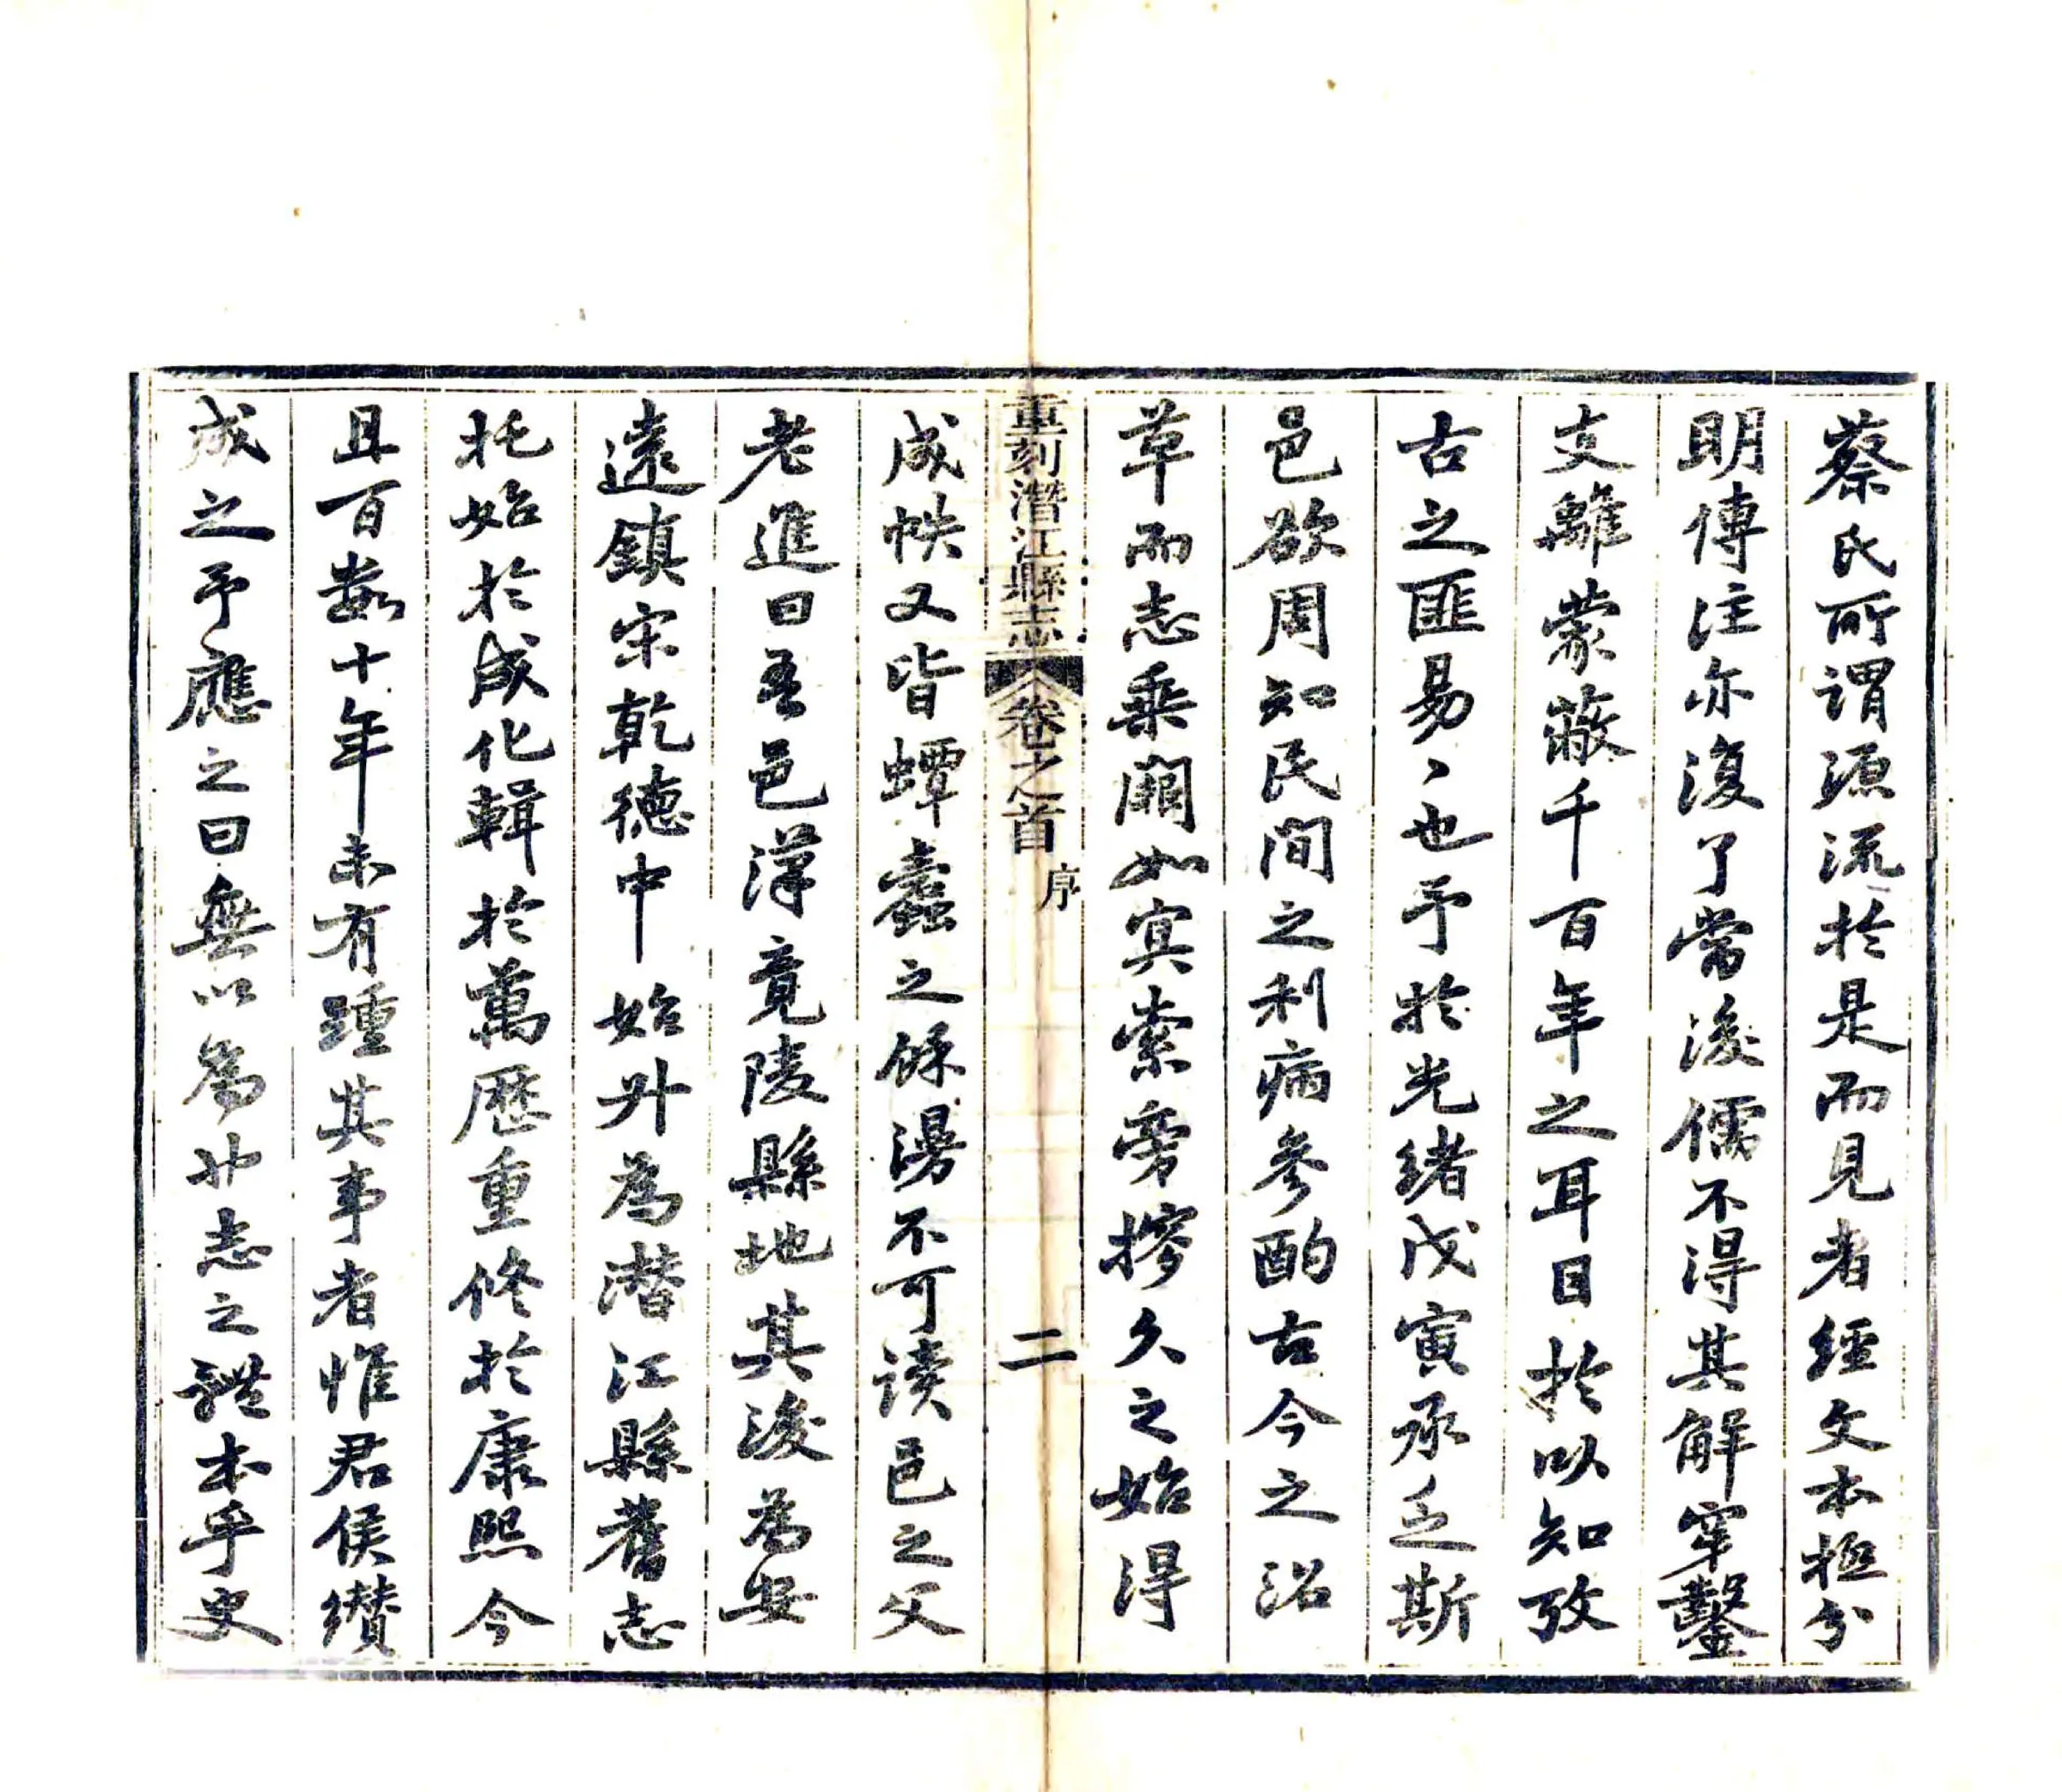 蔡氏所謂源流於是而見者經文本極分
明傳注亦復了當後儒不得其解穿鑿
支離蒙蔽千百年之耳目於以知攷
古之匪易〻也予於光緒戊寅承乏斯
邑欲周知民間之利病參酌古今之沿
革而志乘闕如冥索旁搜久之始得
重刻潛江縣志 卷之首 序 二
成帙又皆蟫蠹之餘漫不可读邑之父
老進曰吾邑漢竟陵縣地其後為安
遠鎮宋乾德中始升為潛江縣舊志
托始於成化輯於萬歷重修於康熙今
且百數十年未有踵其事者惟君侯纘
成之予應之曰無以為也志之體本乎史